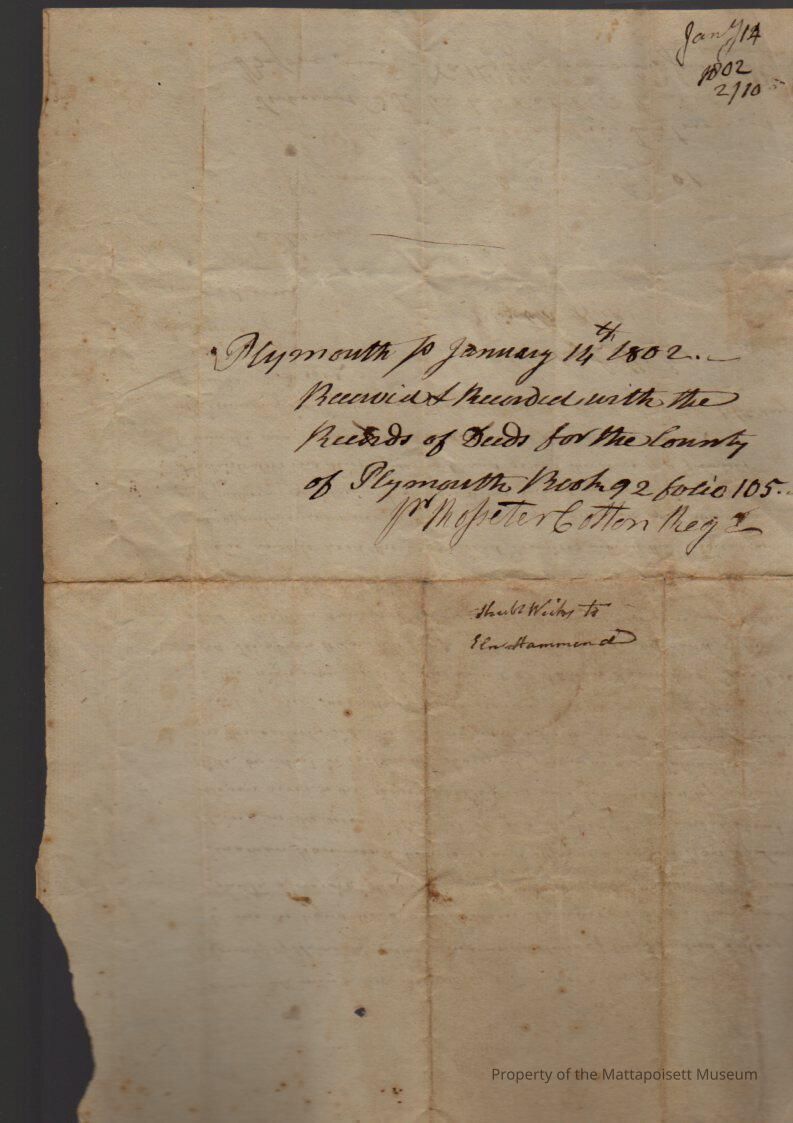 Jan'y 14
1802
2/10
Plymouth ss January 14th 1802.
Received & Recorded with the
Records of Deeds for the County
of Plymouth Book 92 folio 105.
pr Rosseter Cotton Regr
Weeks to
Eln Hammond
Property of the Mattapoisett Museum